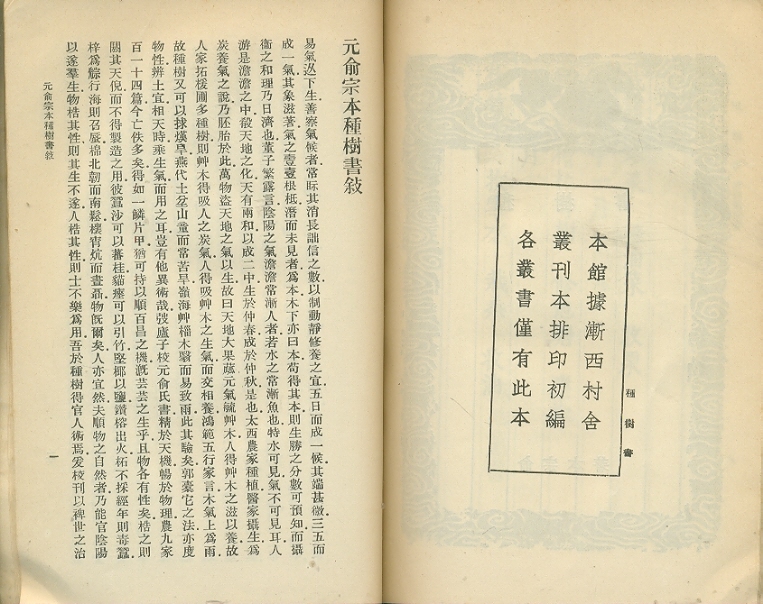 本館據漸西村舍
叢刊本排印初編
各叢書僅有此本
種樹書
元俞宗本種樹書敍
易氣迓下生善察氣候者常眎其消長詘信之數以制動靜修養之宜五日而成一候其端甚微三五而
成一氣其象滋著氣之壹壹根柢潛而未見者爲本木下亦曰本苟得其本則生勝之分數可預知而攝
衞之和理乃日濟也董子繁露言陰陽之氣澹澹常漸人者若水之常漸魚也特水可見氣不可見耳人
游是澹澹之中殽天地之化天有兩和以成二中生於仲春成於仲秋是也太西農家種植醫家攝生爲
炭養氣之說乃胚胎於此萬物盜天地之氣以生故曰天地大果蓏元氣毓艸木人得艸木之滋以養故
人家拓援圃多種樹則艸木得吸人之炭氣人得吸艸木之生氣而交相養鴻範五行家言木氣上爲雨
故種樹又可以捄熯旱燕代土坌山童而常苦旱嶺海艸稠木翳而易致雨此其驗矣郭橐它之法亦度
物性辨土宜相天時乘生氣而用之耳豈有他異術哉弢廬子椄元俞氏書精於天機暢於物理農九家
百一十四篇今亡佚多矣得如一鱗片甲猶可持以順百昌之機漑芸芸之生乎且物各有性矣梏之則
閼其天倪而不得製造之用彼蠶沙可以蕃桂貓瘞可以引竹堅椰以鹽鑽榕出火柘不採經年則毒蠶
梓爲鯮行海則召蜃棉北韌而南鬆櫰宵炕而晝聶物旣爾矣人亦宜然夫順物之自然者乃能官陰陽
以遂羣生物梏其性則其生不遂人梏其性則士不樂爲用吾於種樹得官人術焉爰椄刊以裨世之治
元俞宗本種樹書敍
一